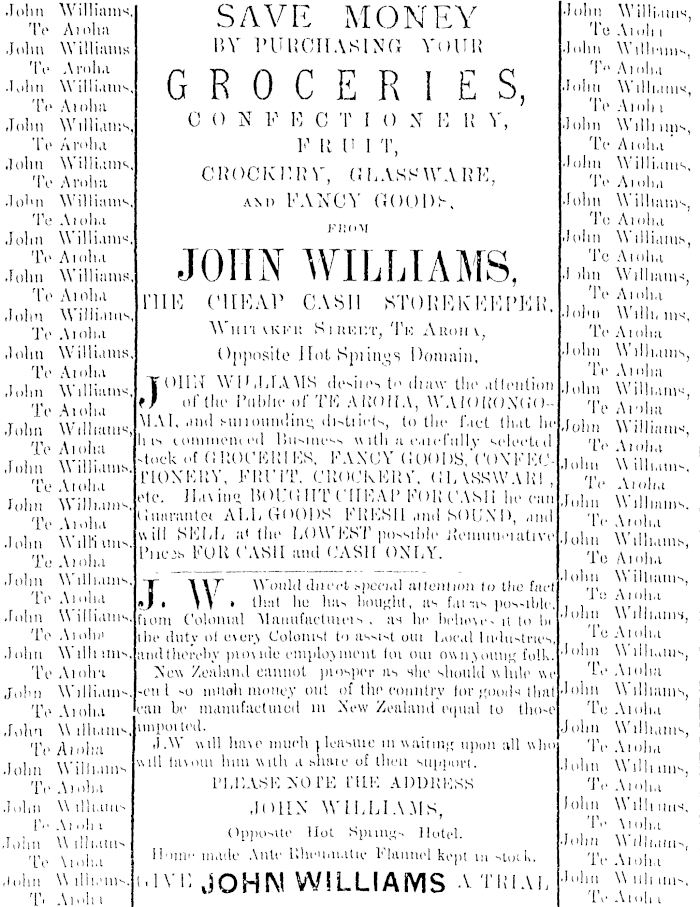 John Williams,
Te Aroha
John Williams
Te Aroha
John Williams,
Te Aroha
John Williams,
Te Aroha
John Williams,
Te Aroha
John Williams,
Te Aroha
John Williams,
Te Aroha
John Williams,
Te Aroha
John Williams,
Te Aroha
John Williams,
Te Aroha
John Williams,
Te Aroha
John Williams,
Te Aroha
John Williams,
Te Aroha
John Williams,
Te Aroha
John Williams,
Te Aroha
John Williams,
Te Aroha
John Williams,
Te Aroha
John Williams,
Te Aroha
John Williams,
Te Aroha
John Williams,
Te Aroha
John Williams
Te Aroha
John Williams
Te Aroha
John Williams
Te Aroha
John Williams,
Te Aroha
SAVE MONEY
BY PURCHASING YOUR
GROCERIES,
CONFECTIONERY,
FRUIT,
CROCKERY, GLASSWARE,
AND FANCY GOODS,
FROM
JOHN WILLIAMS,
THE CHEAP CASH STOREKEEPER,
WHITAKER STREET, TE AROHA,
Opposite Hot Springs Domain,
JOHN WILLIAMS desires to draw the attention
of the Public of TE AROHA, WAIORONGO-
MAI, and surrounding districts, to the fact that he
has commenced Business with a carefully selected
stock of GROCERIES, FANCY GOODS, CONFEC-
TIONERY, FRUIT, CROCKERY, GLASSWARE,
etc. Having BOUGHT CHEAP FOR CASH he can
Guarantee ALL GOODS FRESH and SOUND, and
will SELL at the LOWEST possible Remunerative
Prices FOR CASH and CASH ONLY.
J. W. Would direct special attention to the fact
that he has bought, as far as possible,
from Colonial Manufacturers, as he believes it to be
the duty of every Colonist to assist our Local Industries,
and thereby provide employment for our own young folk.
New Zealand cannot prosper as she should while we
send so much money out of the country for goods that
can be manufactured in New Zealand equal to those
imported.
J.W will have much pleasure in waiting upon all who
will favour him with a share of their support.
PLEASE NOTE THE ADDRESS
JOHN WILLIAMS,
Opposite Hot Springs Hotel.
Home made Ante Rheumatic Flannel kept in stock.
GIVE JOHN WILLIAMS A TRIAL
John Williams,
Te Aroha
John Williams,
Te Aroha
John Williams,
Te Aroha
John Williams,
Te Aroha
John Williams,
Te Aroha
John Williams,
Te Aroha
John Williams,
Te Aroha
John Williams,
Te Aroha
John Williams,
Te Aroha
John Williams,
Te Aroha
John Williams,
Te Aroha
John Williams,
Te Aroha
John Williams,
Te Aroha
John Williams,
Te Aroha
John Williams,
Te Aroha
John Williams,
Te Aroha
John Williams,
Te Aroha
John Williams,
Te Aroha
John Williams,
Te Aroha
John Williams,
Te Aroha
John Williams,
Te Aroha
John Williams,
Te Aroha
John Williams,
Te Aroha
John Williams,
Te Aroha